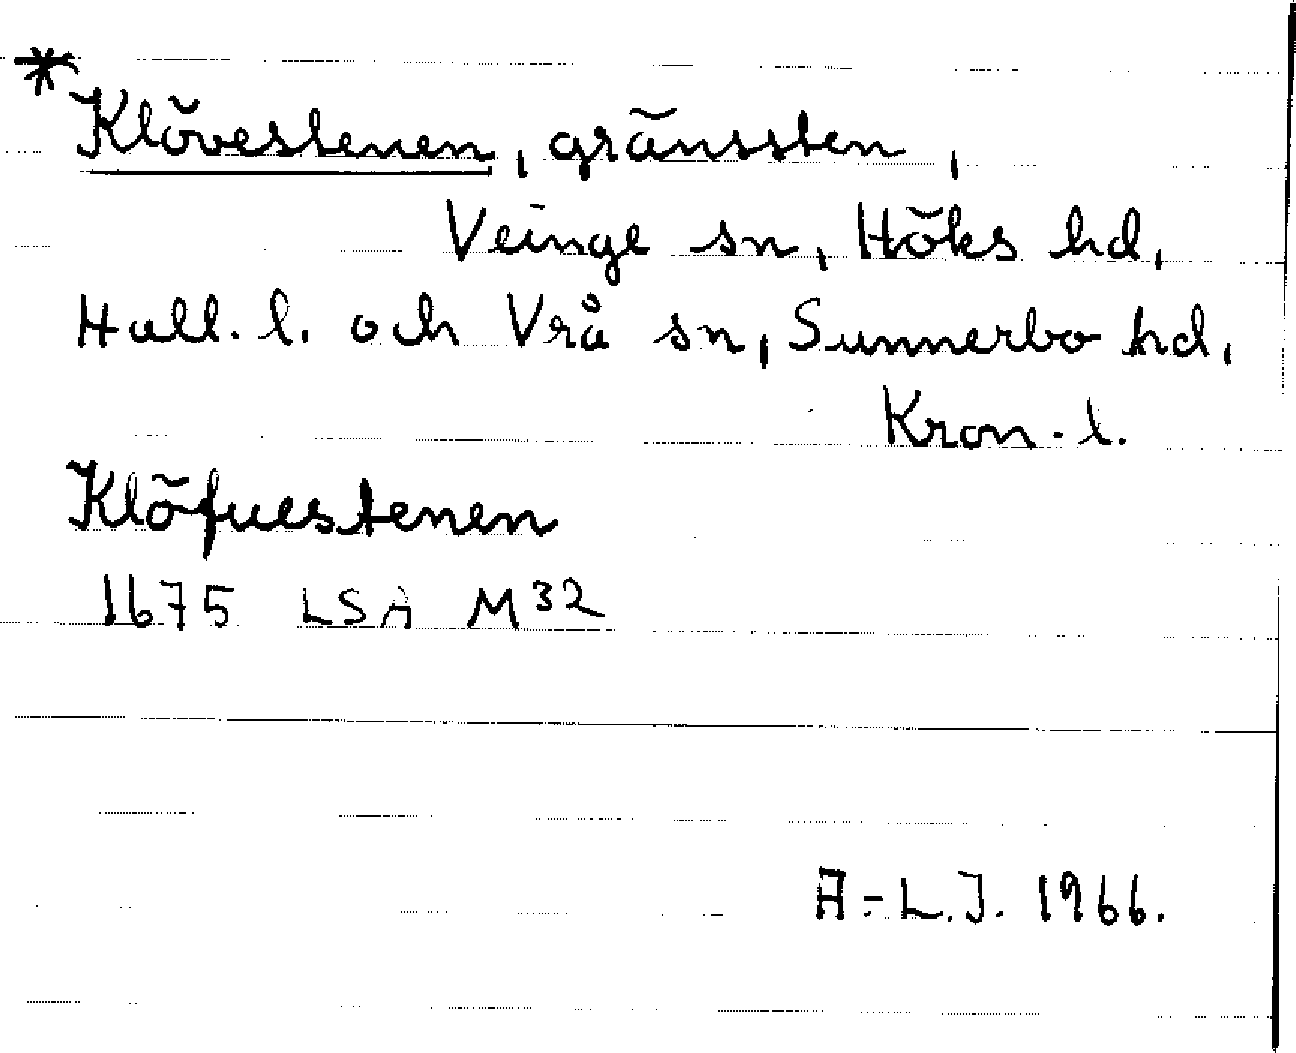 * Klövestenen, gränssten,
Veinge sn, Höks hd,
Hall. l. och Vrå sn, Sunnerbo hd,
Kron. l.
Klöfuestenen
1675 LSA M32
A-L.J. 1966.